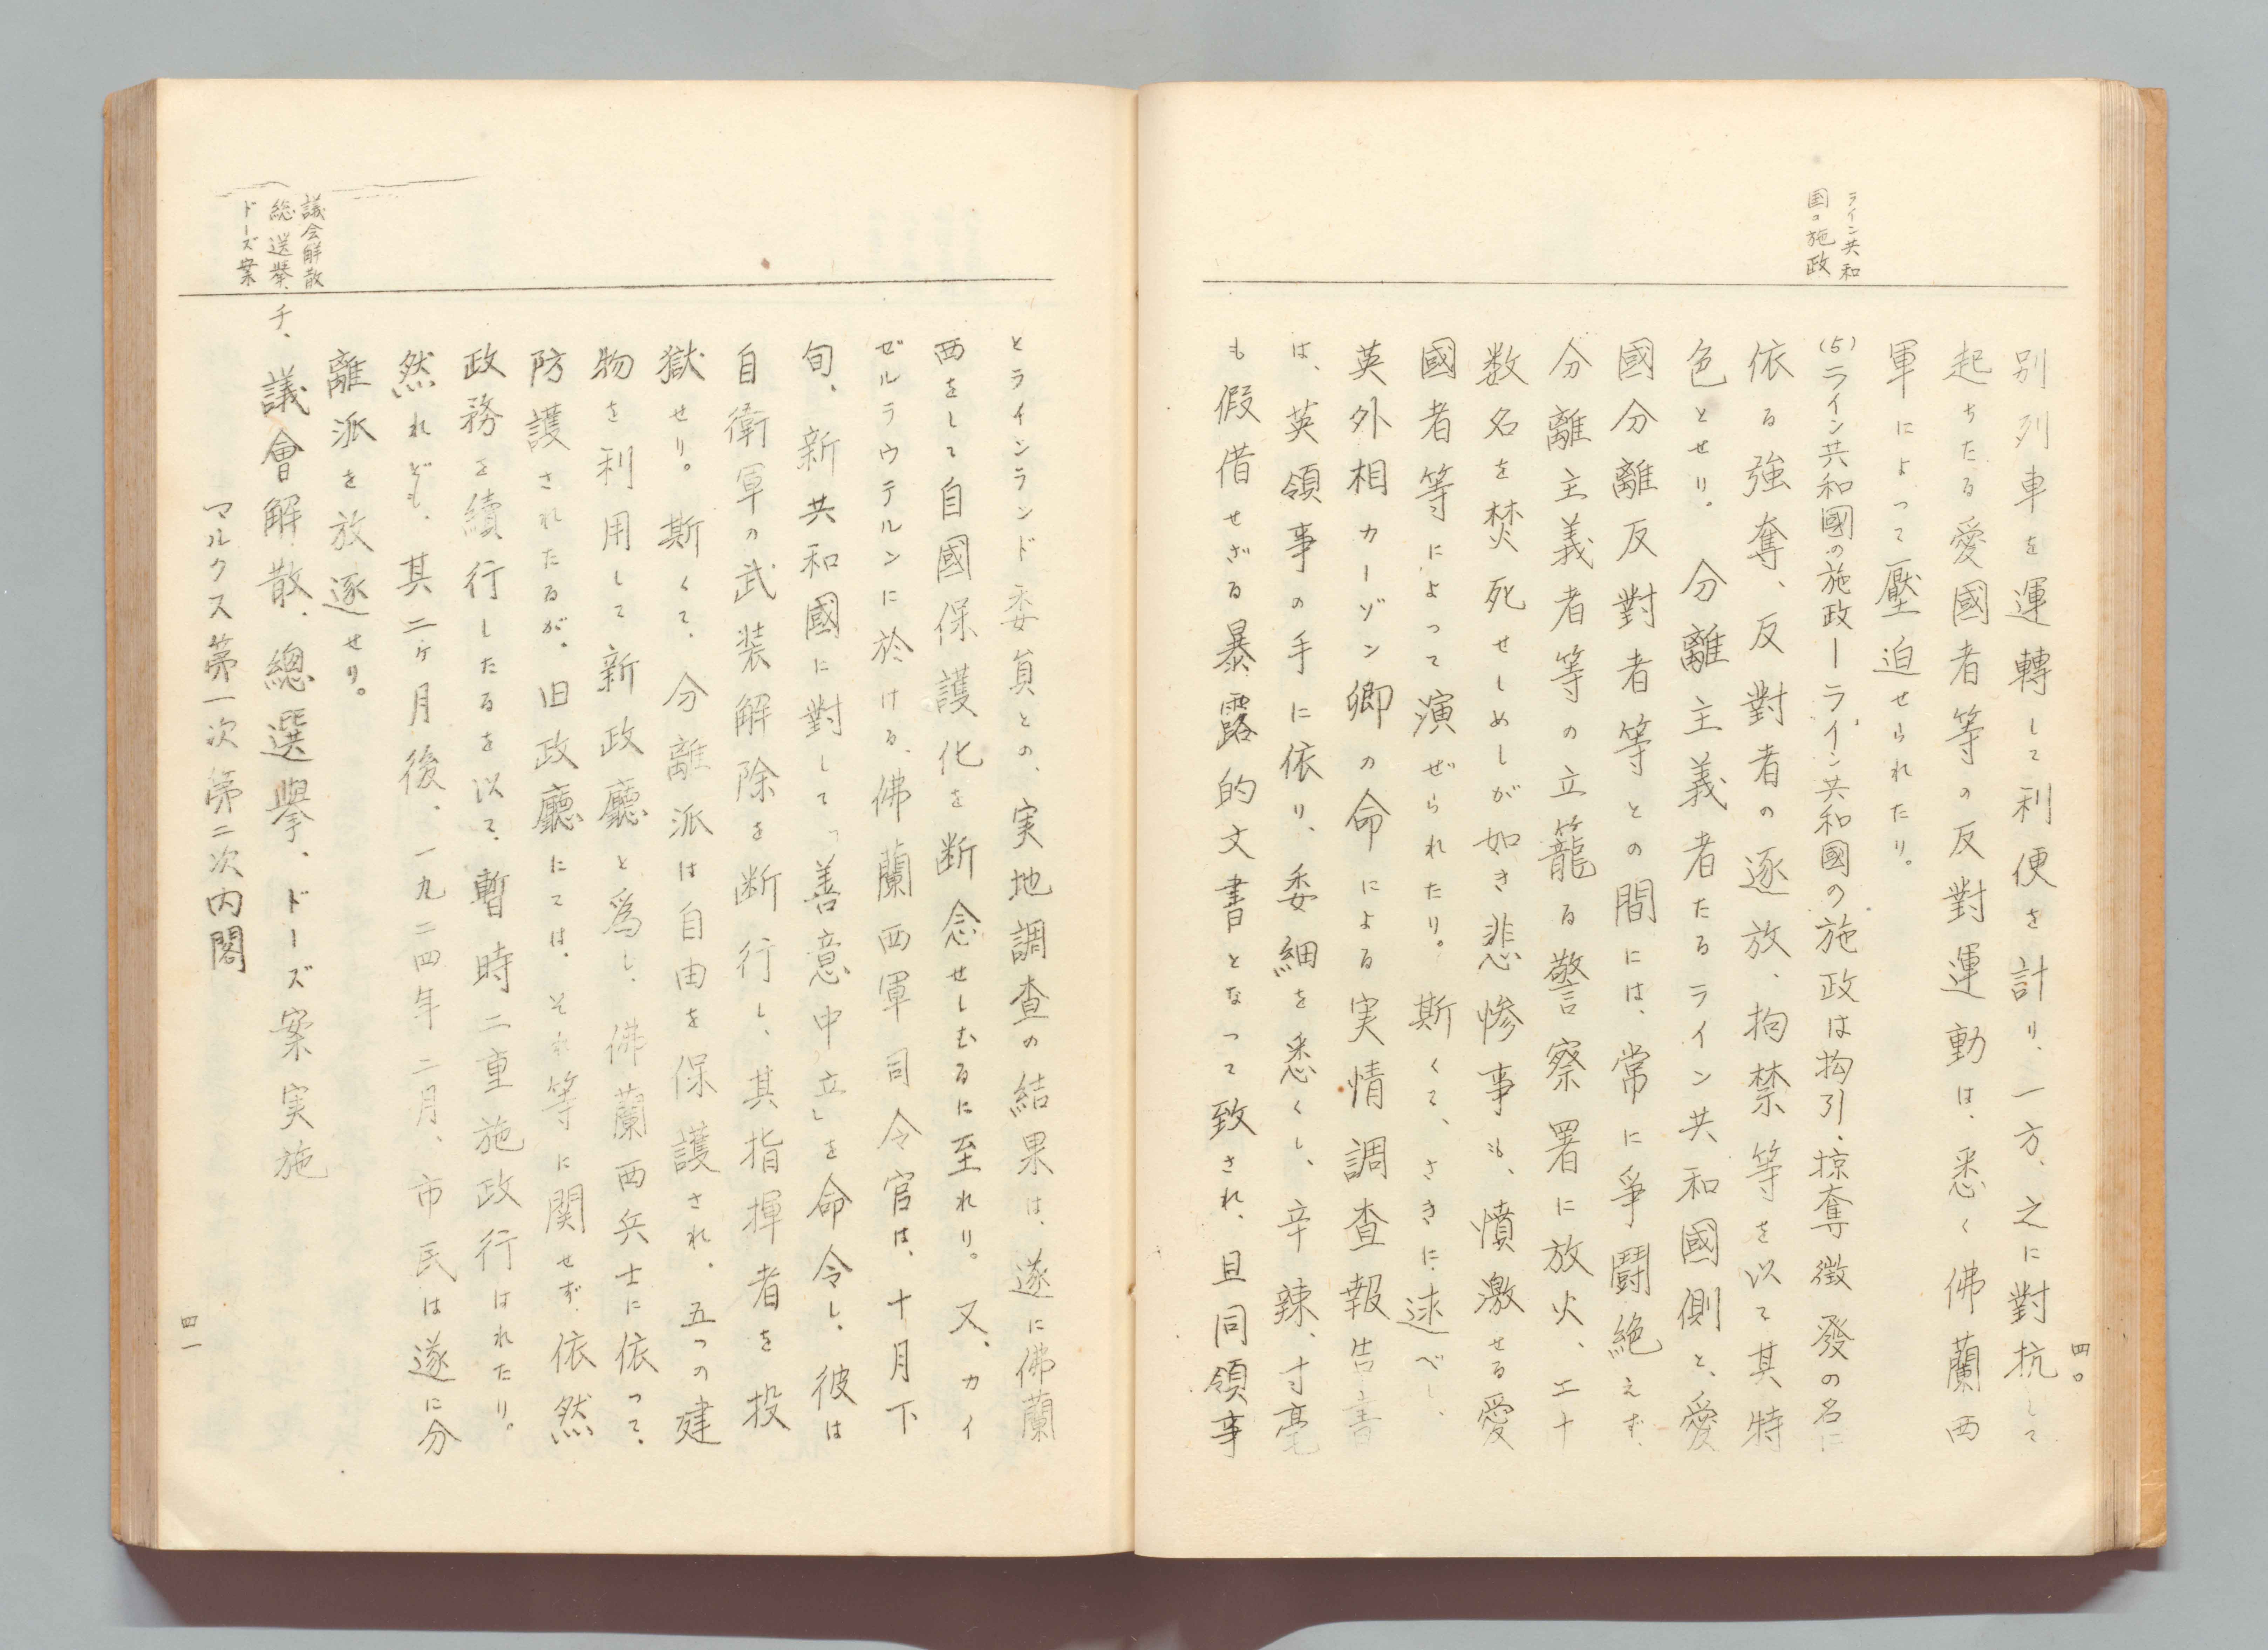 四〇
ライン共和
国の施政
別列車を運轉して利便を計り、一方、之に對抗して
起ちたる愛國者等の反對運動は、悉く佛蘭西
軍によって壓迫せられたり。
(5)ライン共和國の施政ーライン共和國の施政は拘引、掠奪徴發の名に
依る強奪、反對者の逐放、拘禁等を以て其特
色とせり。分離主義者たるライン共和國側と、愛
國分離反對者等との間には、常に爭鬪絶えず、
分離主義者等の立籠る警察署に放火、二十
数名を焚死せしめしが如き悲惨事も、憤激せる愛
國者等によって演ぜられたり。斯くて、さきに逑べし、
英外相カーゾン卿の命による実情調査報告書
は、英領事の手に依り、委細を悉くし、辛辣、寸毫
も假借せざる暴露的文書となって致され、且同領事
とラインランド委員との、実地調査の結果は、遂に佛蘭
西をして自國保護化を断念せしむるに至れり。又、カイ
ゼルラウテルンに於ける、佛蘭西軍司令官は、十月下
旬、新共和國に對して「善意中立」を命令し、彼は
自衛軍の武装解除を断行し、其指揮者を投
獄せり。斯くて、分離派は自由を保護され、五つの建
物を利用して新政廳と爲し、佛蘭西兵士に依って、
防護されたるが、旧政廳にては、それ等に関せず、依然
政務を續行したるを以て、暫時二重施政行はれたり。
然れども、其二ヶ月後、一九二四年二月、市民は遂に分
離派を放逐せり。
議会解散
総選挙
ドーズ案
チ、議會解散、總選擧、ドーズ案実施
マルクス第一次第二次内閣
四一